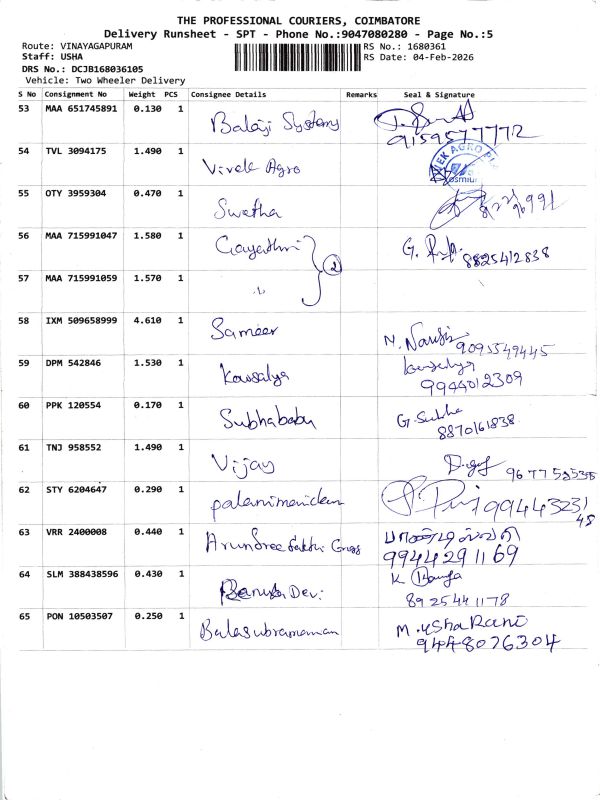 THE PROFESSIONAL COURIERS, COIMBATORE
Delivery Runsheet - SPT - Phone No.:9047080280 - Page No.:5
Route: VINAYAGAPURAM RS No.: 1680361
Staff: USHA RS Date: 04-Feb-2026
DRS No.: DCJB168036105
Vehicle: Two Wheeler Delivery
S No Consignment No Weight PCS Consignee Details Remarks Seal & Signature
53 MAA 651745891 0.130 1 Balaji Systems
9159577772
54 TVL 3094175 1.490 1 Vivek Agro
55 OTY 3959304 0.470 1 Swetha
56 MAA 715991047 1.580 1 Gayathri 2 G. 8825412838
57 MAA 715991059 1.570 1
58 IXM 509658999 4.610 1 Sameer N. 9093549445
59 DPM 542846 1.530 1 Kowsalya kowsalya
9944012309
60 PPK 120554 0.170 1 Subhababu G. Subha
8870161838
61 TNJ 958552 1.490 1 Vijay
62 STY 6204647 0.290 1 palanimanickam 9944323148
63 VRR 2400008 0.440 1 Arundree Sakthi
9944291169
64 SLM 388438596 0.430 1 Banusha Devi K
8925441178
65 PON 10503507 0.250 1 Balasubramaman M. Usha Rani
9448076304